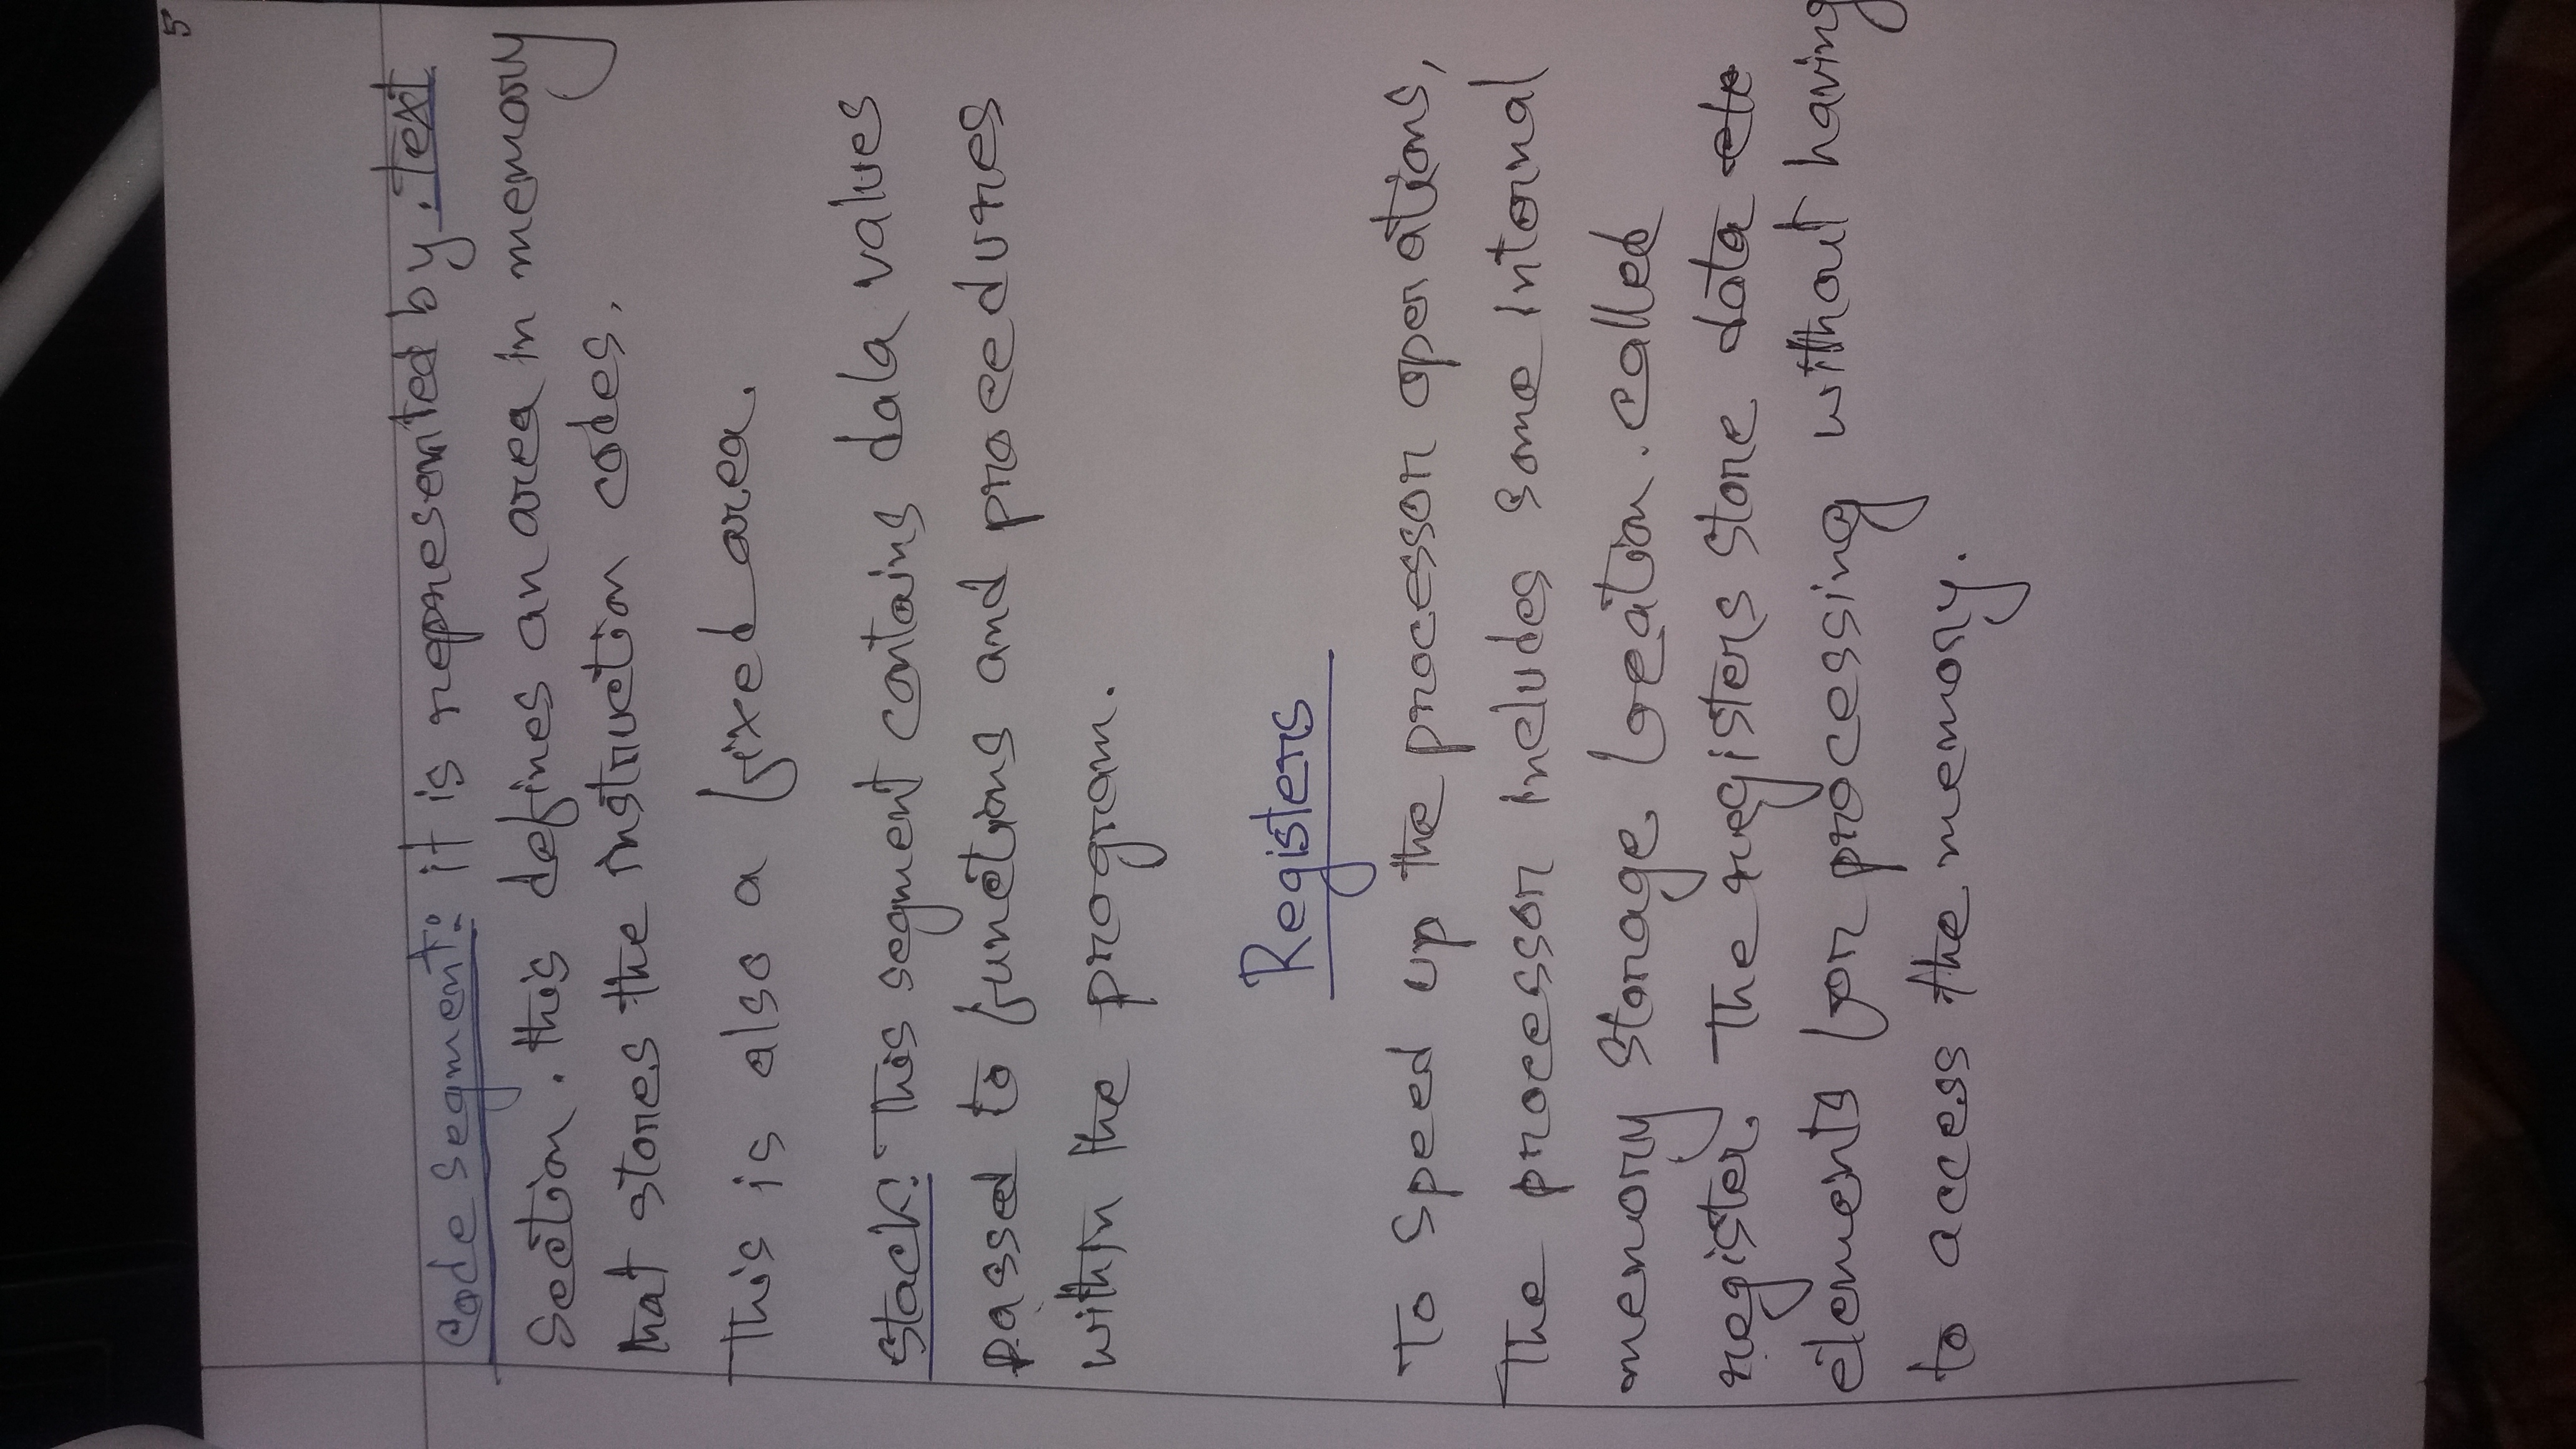 5
Code segment: it is represented by .text
Section. this defines an area in memory
that stores the instruction codes.
This is also a fixed area.
Stack: This segment contains data values
passed to functions and procedures
within the program.
Registers
To speed up the processor operations,
The processor includes some internal
memory storage location. called
register. The registers store data ele
elements for processing without having
to access the memory.